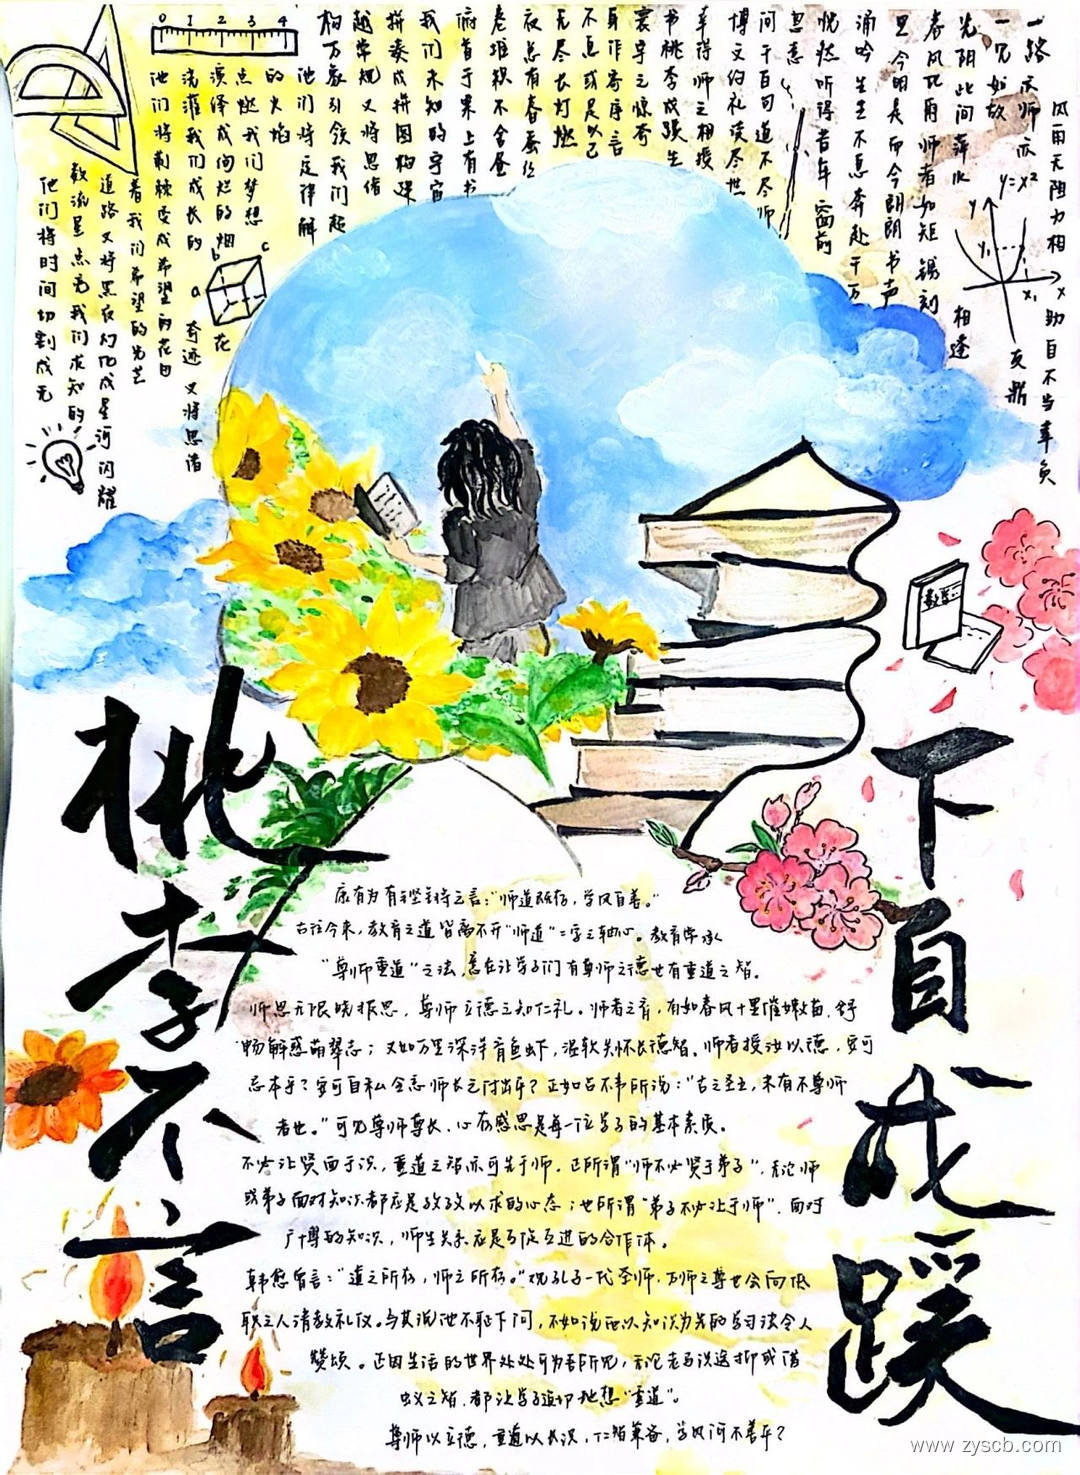 一路
一见如故
风雨无阻力相助自不当辜负
光阴此间
春风化雨师者如矩镌刻
相逢
里今明是而今朗朗书声
涌吟生生不息奔赴千万
恍然听得昔年窗前
问千百句道不尽师
博文约礼读尽世
幸得师之相授
书桃李成蹊生
寰宇之惊奇
身作寄序言
不息或是以己
无尽长灯燃
夜总有春蚕丝
老堆积不舍昼
俯首于案上有书
我们未知的宇宙
拼凑成拼图构建
越常规又将思绪
构万象引领我们超
他们将定律解
的火焰
点燃我们梦想
演绎成绚烂的烟花
浇灌我们成长的奇迹又将思绪
他们将荆棘变成希望的花田
着我们希望的光芒
道路又将黑夜幻化成星河闪耀
数流星点亮我们求知的
他们将时间切割成无
0 1 2 3 4
a
b
c
y=x²
y
y₁
x₁
x
数学
桃李不言
下自成蹊
康有为有铿锵之言:“师道既存，学风自善。”
古往今来，教育之道皆离不开“师道”二字之轴心。教育传承
“尊师重道”之法，意在让学子们有尊师之德也有重道之智。
师恩无限晓报恩，尊师立德之知仁礼。师者之育，有如春风十里催嫩苗，舒
畅解惑萌翠志；又如万里深洋育鱼虾，温软关怀长德智。师者授汝以德，安可
忘本乎？安可自私全忘师长之付出乎？正如吕不韦所说：“古之圣王，未有不尊师
者也。”可见尊师尊长、心存感恩是每一位学子的基本素质。
不必让贤而于识，重道之智亦可先于师。正所谓“师不必贤于弟子”，无论师
或弟子面对知识都应是孜孜以求的心态；也所谓“弟子不必让于师”，面对
广博的知识，师生关系应是互促互进的合作体。
韩愈留言：“道之所存，师之所存。”观孔子一代圣师，万师之尊也会向低
职之人请教礼仪。与其说他不耻下问，不如说正以知识为光的学习法令人
赞颂。正因生活的世界处处可为吾所见，无论老马识途抑或借
蚁之智，都让学子迫切地想“重道”。
尊师以立德，重道以长识，仁智兼备，学风何不善乎？
www.zyscb.com